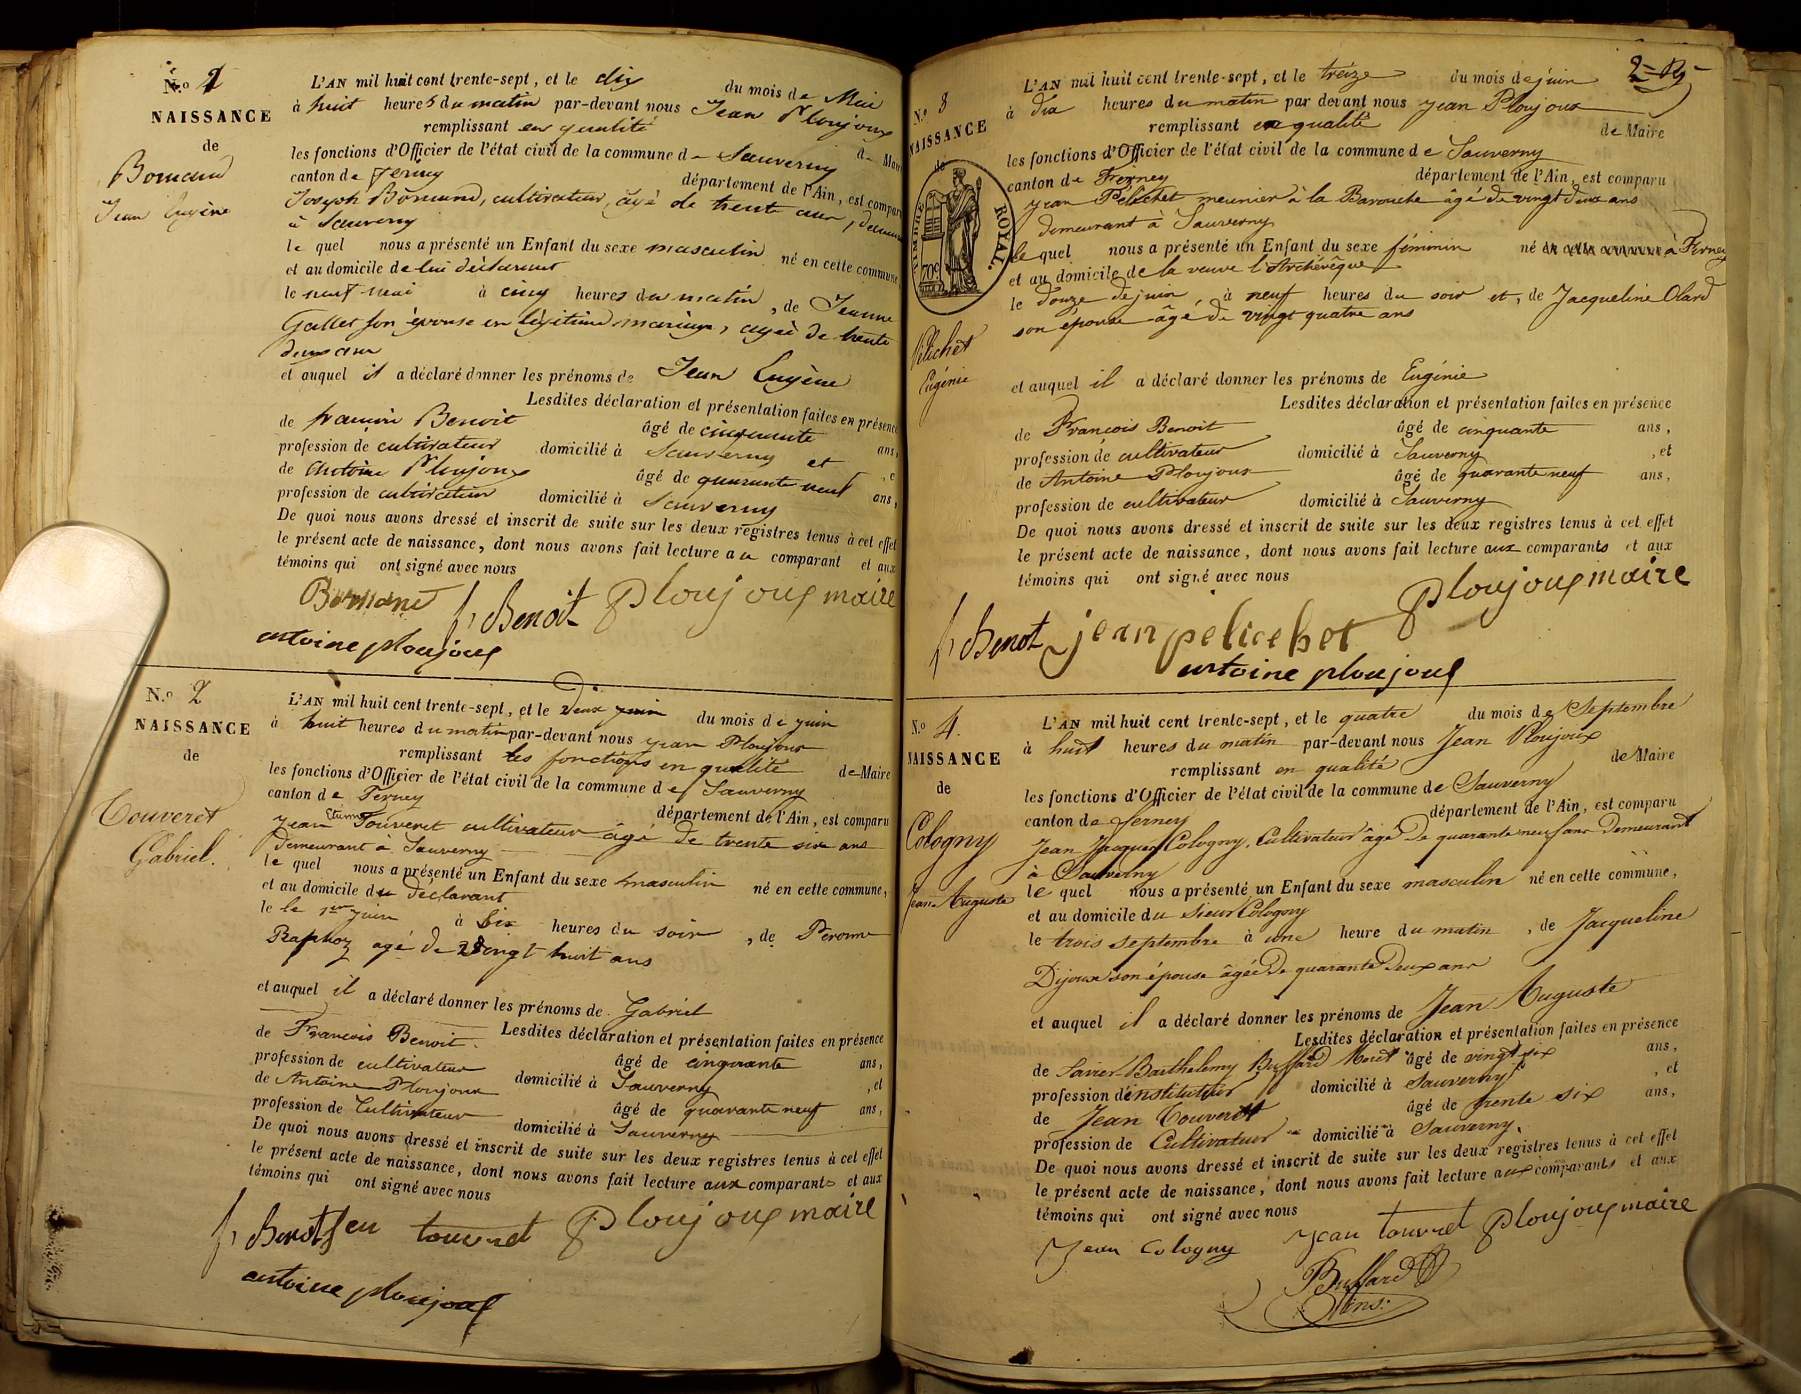 N.o 1
NAISSANCE
de
Bomand
Jean Eugène
L'AN mil huit cent trente-sept, et le dix du mois de Mai
à huit heures du matin par-devant nous Jean Ploujoux
remplissant en qualité de Maire
les fonctions d'Officier de l'état civil de la commune de Sauverny
canton de Ferney département de l'Ain, est comparu
Joseph Bomand, cultivateur, âgé de trente ans, demeurant
à Sauverny
le quel nous a présenté un Enfant du sexe masculin né en cette commune,
et au domicile de lui déclarant
le neuf mai à cinq heures du matin, de Jeanne
Gallet son épouse en légitime mariage, agée de trente
deux ans
et auquel il a déclaré donner les prénoms de Jean Eugène
Lesdites déclaration et présentation faites en présence
de françois Benoit âgé de cinquante ans,
profession de cultivateur domicilié à Sauverny et
de Antoine Ploujoux âgé de quarante neuf ans,
profession de cultivateur domicilié à Sauverny
De quoi nous avons dressé et inscrit de suite sur les deux registres tenus à cet effet
le présent acte de naissance, dont nous avons fait lecture au comparant et aux
témoins qui ont signé avec nous
Bomand f, Benoit Ploujoux maire
antoine ploujoux
N.o 2
NAISSANCE
de
Touveret
Gabriel.
L'AN mil huit cent trente-sept, et le Deux juin du mois de juin
à huit heures du matin par-devant nous jean Ploujoux
remplissant les fonctions en qualité de Maire
les fonctions d'Officier de l'état civil de la commune de Sauverny
canton de Ferney département de l'Ain, est comparu
jean Etienne Touveret cultivateur âgé de trente six ans
Demeurant à Sauverny
le quel nous a présenté un Enfant du sexe masculin né en cette commune,
et au domicile du Déclarant
le le 1er juin à six heures du soir, de Peronne
Raphoz agé de vingt huit ans
et auquel il a déclaré donner les prénoms de Gabriel
Lesdites déclaration et présentation faites en présence
de François Benoit âgé de cinquante ans,
profession de cultivateur domicilié à Sauverny, et
de Antoine Ploujoux âgé de quarante neuf ans,
profession de Cultivateur domicilié à Sauverny
De quoi nous avons dressé et inscrit de suite sur les deux registres tenus à cet effet
le présent acte de naissance, dont nous avons fait lecture aux comparants et aux
témoins qui ont signé avec nous
f, Benoit Jean touvret Ploujoux maire
antoine ploujoux
N.o 3
NAISSANCE
de
TIMBRE ROYAL.
70c
Pelichet
Eugénie
L'AN mil huit cent trente-sept, et le treize du mois de juin
à dix heures du matin par devant nous jean Ploujoux
remplissant en qualité de Maire
les fonctions d'Officier de l'état civil de la commune de Sauverny
canton de Ferney département de l'Ain, est comparu
jean Pelichet meunier à la Barouche âgé de vingt deux ans
demeurant à Sauverny
le quel nous a présenté un Enfant du sexe féminin né en cette commune à Ferney
et au domicile de la veuve l'Archévêque
le Douze de juin à neuf heures du soir et, de Jacqueline Olard
son épouse âgé de vingt quatre ans
et auquel il a déclaré donner les prénoms de Eugénie
Lesdites déclaration et présentation faites en présence
de François Benoit âgé de cinquante ans,
profession de cultivateur domicilié à Sauverny, et
de Antoine Ploujoux âgé de quarante neuf ans,
profession de cultivateur domicilié à Sauverny
De quoi nous avons dressé et inscrit de suite sur les deux registres tenus à cet effet
le présent acte de naissance, dont nous avons fait lecture aux comparants et aux
témoins qui ont signé avec nous
Ploujoux maire
f, Benoit jean pelicehet
antoine ploujoux
N.o 4.
NAISSANCE
de
Cologny
Jean Auguste
L'AN mil huit cent trente-sept, et le quatre du mois de Septembre
à huit heures du matin par-devant nous Jean Ploujoux
remplissant en qualité de Maire
les fonctions d'Officier de l'état civil de la commune de Sauverny
canton de Ferney département de l'Ain, est comparu
Jean Jacques Cologny, Cultivateur âgé De quarante neuf ans Demeurant
à Sauverny
le quel nous a présenté un Enfant du sexe masculin né en cette commune,
et au domicile du Sieur Cologny
le trois septembre à une heure du matin, de Jacqueline
Dijoux son épouse âgée De quarante Deux ans
et auquel il a déclaré donner les prénoms de Jean Auguste
Lesdites déclaration et présentation faites en présence
de Savier Barthelemy Buffard Moret âgé de vingt six ans,
profession d'instituteur domicilié à Sauverny, et
de Jean Touveret âgé de trente six ans,
profession de Cultivateur domicilié à Sauverny.
De quoi nous avons dressé et inscrit de suite sur les deux registres tenus à cet effet
le présent acte de naissance, dont nous avons fait lecture aux comparants et aux
témoins qui ont signé avec nous
Jean Cologny jean touvret Ploujoux maire
Buffard